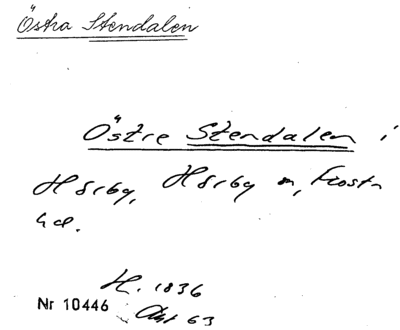 Östra Stendalen
Östre Stendalen i
Hörby, Hörby sn, Frostn
hd.
H. 1836
Nr 10446 Akt 63